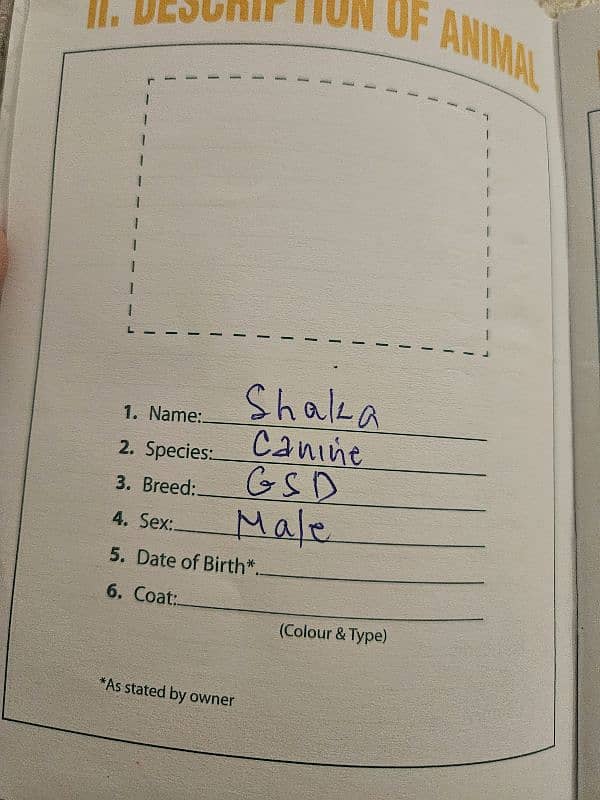 II. DESCRIPTION OF ANIMAL
1. Name: Shaka
2. Species: Canine
3. Breed: GSD
4. Sex: Male
5. Date of Birth*
6. Coat:
(Colour & Type)
*As stated by owner